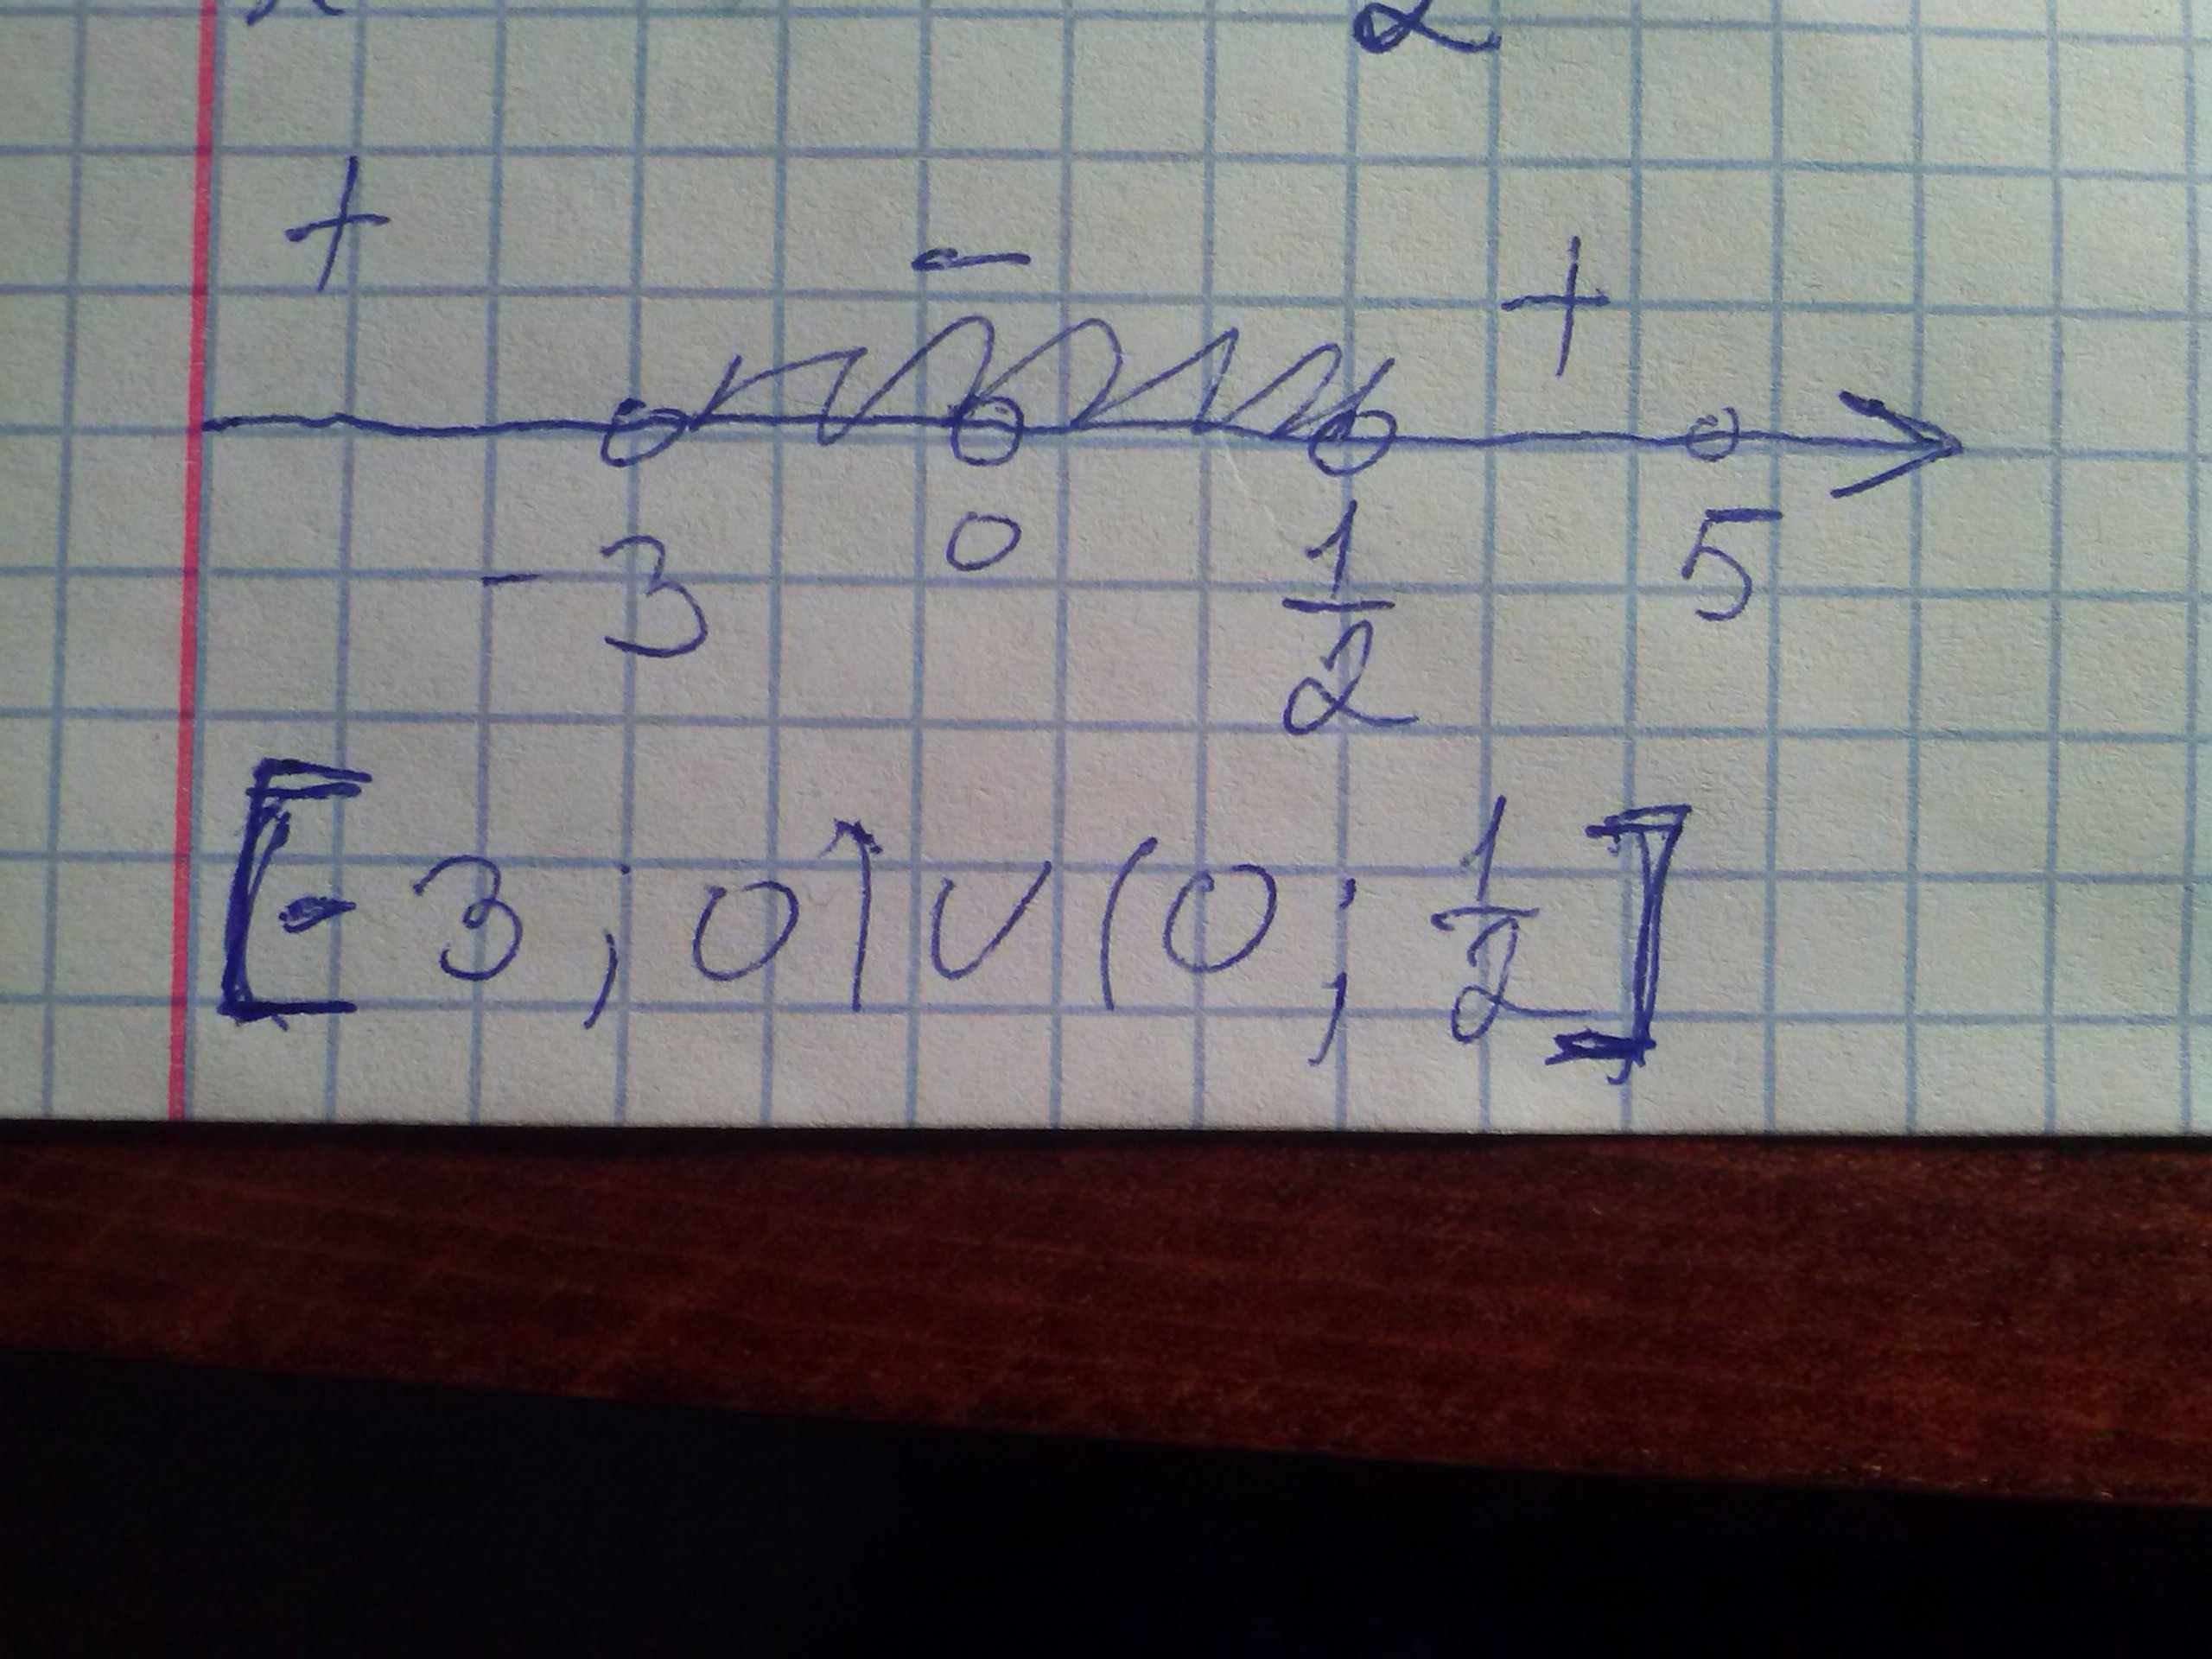 + - +
-3 0 1/2 5
[-3; 0) ∪ (0; 1/2]